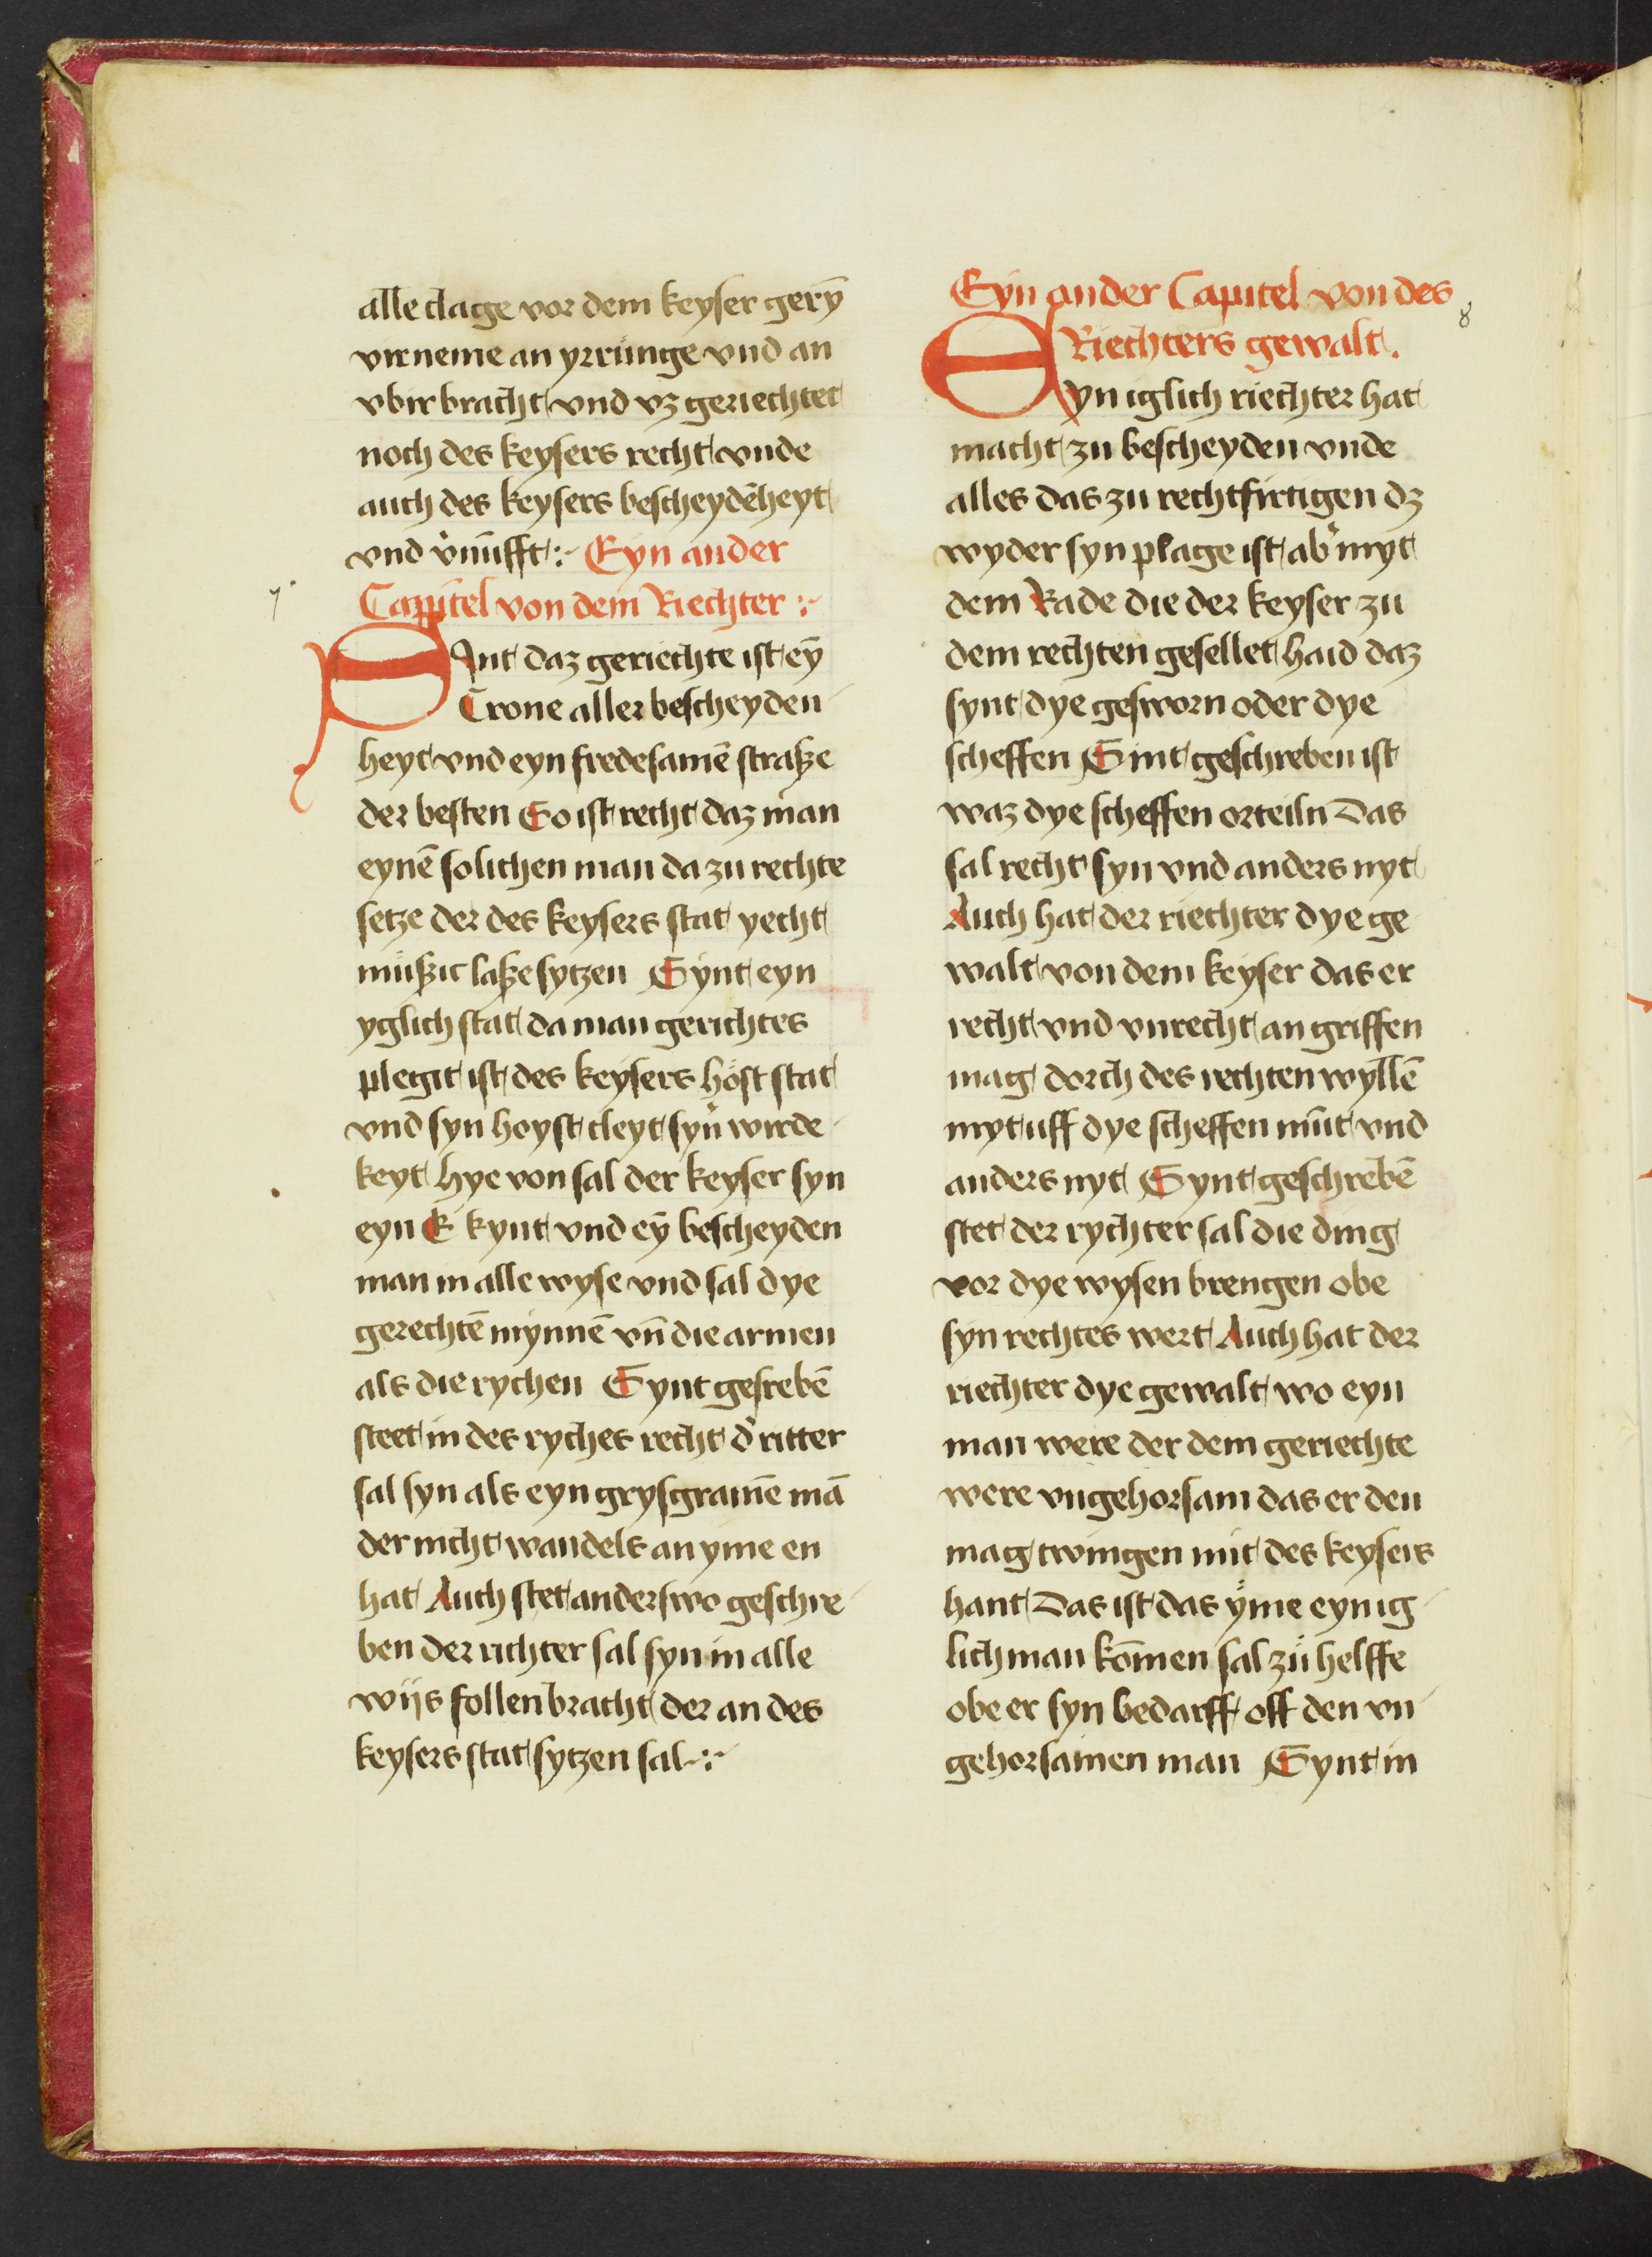 alle clage vor dem keyser gerȳ
virneme an yrrunge vnd an
vbirbracht vnd vz geriechtet
noch des keysers recht vnde
auch des keysers bescheydēheyt
vnd v̓nūfft :~ Eyn ander
7
Capitel von dem Riechter :~
Synt daz geriechte ist eȳ
Crone aller bescheyden
heyt vnd eyn fredesamē straße
der besten So ist recht daz man
eynē solichen man da zu rechte
setze der des keysers stat yecht
mußir laße sytzen Synt eyn
yglich stat da man gerichtes
plegit ist des keysers host stat
vnd syn hoyst cleyt syn̓ wirde
keyt hye von sal der keyser syn
eyn E kynt vnd eȳ bescheyden
man in alle wyse vnd sal dye
gerechtē mynnē vn̄ die armen
als die rychen Synt gesrebē
steet in des ryches recht d̓ ritter
sal syn als eyn grysgramē mā
der nicht wandels an yme en
hat Auch stet anderswo geschre
ben der richter sal syn in alle
wijs follenbracht der an des
keysers stat sytzen sal :~
Eyn ander Capitel von des
8
Riechters gewalt.
Eyn iglich riechter hat
macht zu bescheyden vnde
alles das zu rechtfirtigen dz
wyder syn plage ist ab̓ myt
dem Rade die der keyser zu
dem rechten gesellet haid daz
synt dye gesworn oder dye
scheffen Sint geschreben ist
waz dye scheffen orteiln Das
sal recht syn vnd anders nyt
Auch hat der riechter dye ge
walt von dem keyser das er
recht vnd vnrecht an griffen
mag dorch des rechten wyllē
myt uff dye scheffen mūt vnd
anders nyt Synt geschrebē
stet der rychter sal die ding
vor dye wysen brengen obe
syn rechtes wert Auch hat der
riechter dye gewalt wo eyn
man were der dem geriechte
were vngehorsam das er den
mag twingen mit des keysers
hant Das ist das yme eyn ig
lich man kōmen sal zu helffe
obe er syn bedarff off den vn
gehorsamen man Synt in